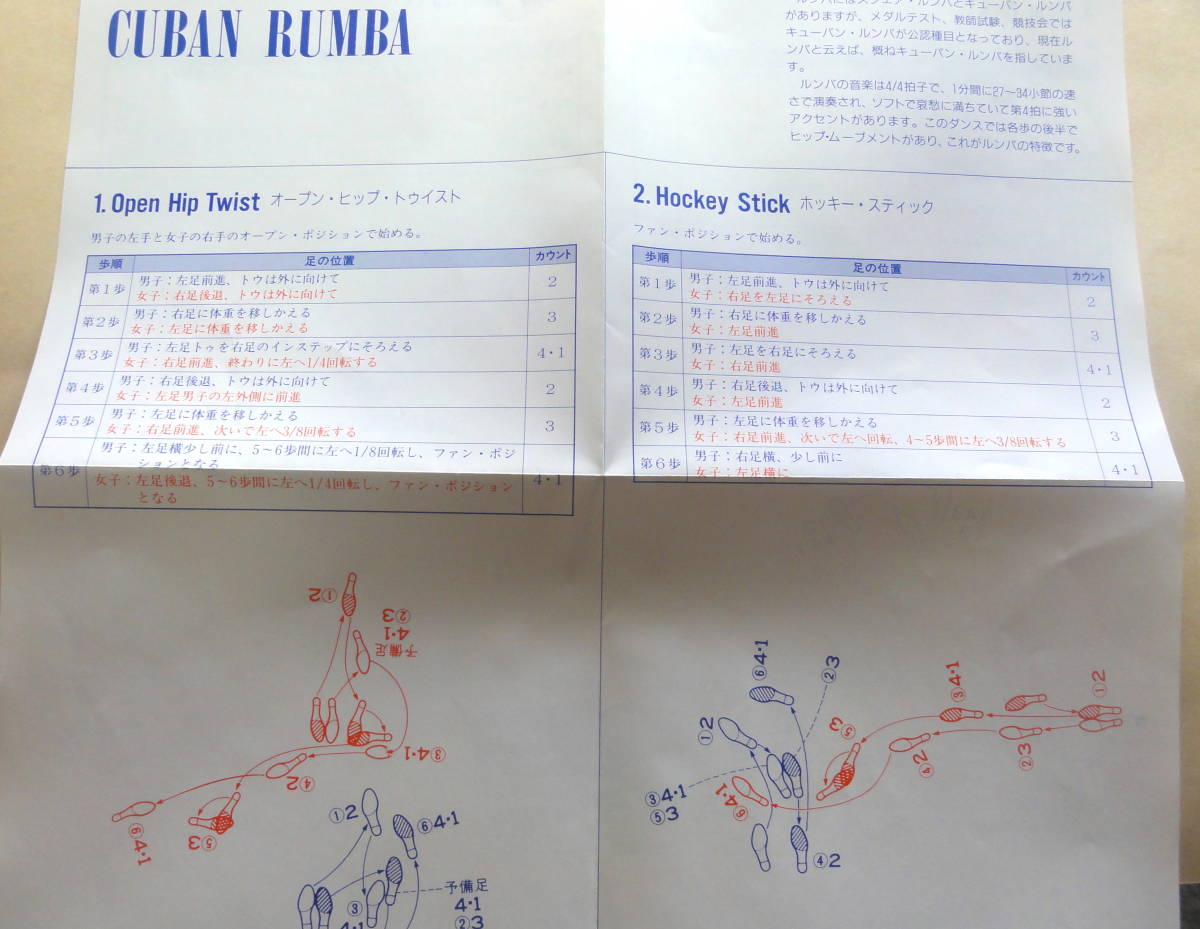 CUBAN RUMBA
ルンバにはスクエア・ルンバとキューバン・ルンバ
がありますが、メダルテスト、教師試験、競技会では
キューバン・ルンバが公認種目となっており、現在ル
ンバと云えば、概ねキューバン・ルンバを指していま
す。
ルンバの音楽は4/4拍子で、1分間に27～34小節の速
さで演奏され、ソフトで哀愁に満ちていて第4拍に強い
アクセントがあります。このダンスでは各歩の後半で
ヒップ・ムーブメントがあり、これがルンバの特徴です。
1. Open Hip Twist オープン・ヒップ・トゥイスト
男子の左手と女子の右手のオープン・ポジションで始める。
歩順 足の位置 カウント
第1歩 男子：左足前進、トウは外に向けて 2
女子：右足後退、トウは外に向けて
第2歩 男子：右足に体重を移しかえる 3
女子：左足に体重を移しかえる
第3歩 男子：左足トゥを右足のインステップにそろえる 4・1
女子：右足前進、終わりに左へ1/4回転する
第4歩 男子：右足後退、トウは外に向けて 2
女子：左足男子の左外側に前進
第5歩 男子：左足に体重を移しかえる 3
女子：右足前進、次いで左へ3/8回転する
第6歩 男子：左足横少し前に、5～6歩間に左へ1/8回転し、ファン・ポジ 4・1
ションとなる
女子：左足後退、5～6歩間に左へ1/4回転し、ファン・ポジション
となる
2. Hockey Stick ホッキー・スティック
ファン・ポジションで始める。
歩順 足の位置 カウント
第1歩 男子：左足前進、トウは外に向けて 2
女子：右足を左足にそろえる
第2歩 男子：右足に体重を移しかえる 3
女子：左足前進
第3歩 男子：左足を右足にそろえる 4・1
女子：右足前進
第4歩 男子：右足後退、トウは外に向けて 2
女子：左足前進
第5歩 男子：左足に体重を移しかえる 3
女子：右足前進、次いで左へ回転、4～5歩間に左へ3/8回転する
第6歩 男子：右足横、少し前に 4・1
女子：左足横に
①2
②3
4・1
予備足
③4・1
④2
⑤3
⑥4・1
①2
⑥4・1
予備足
4・1
②3
③
4・1
⑥4・1
②3
①2
③4・1
⑤3
④2
⑥4・1
⑤3
④2
③4・1
②3
①2